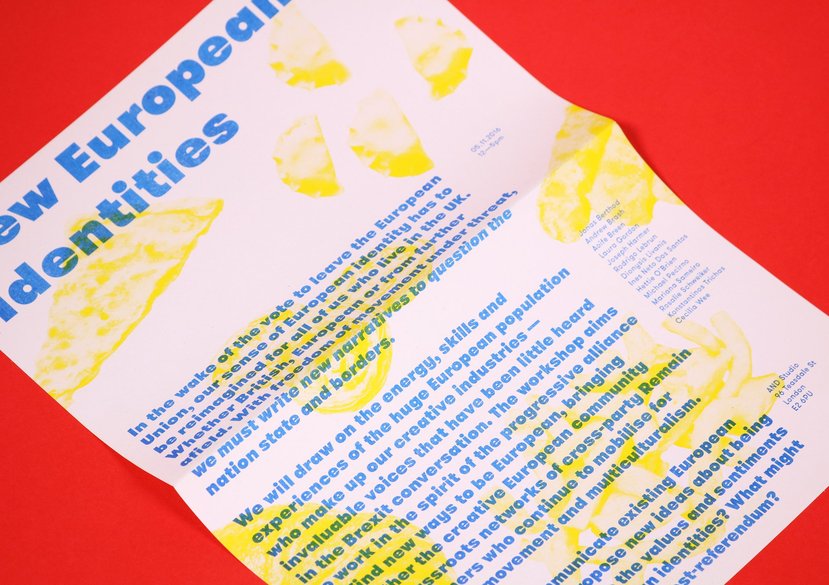 ew European
Identities
05.11.2016
12—6pm
In the wake of the vote to leave the European
Union, our sense of European identity has to
be reimagined for all of us who live in the UK.
Whether British, European or from further
afield. With freedom of movement under threat,
we must write new narratives to question the
nation state and borders.
We will draw on the energy, skills and
experiences of the huge European population
who make up our creative industries —
invaluable voices that have been little heard
in the Brexit conversation. The workshop aims
work in the spirit of the progressive alliance
ind new ways to be European, bringing
her the creative European community
ssroots networks of cross-party Remain
ers who continue to mobilise for
ovement and multiculturalism.
municate existing European
opose new ideas about being
the values and sentiments
identities? What might
st-referendum?
Jonas Berthod
Andrew Brash
Aoife Breen
Laura Gordon
Joseph Harmer
Rodrigo Lebrun
Dionysis Livanis
Ines Neto Dos Santos
Hettie O'Brien
Michael Pecirno
Mariana Sameiro
Rosalie Schweiker
Konstantinos Trichas
Cecilia Wee
AND Studio
96 Teesdale St
London
E2 6PU